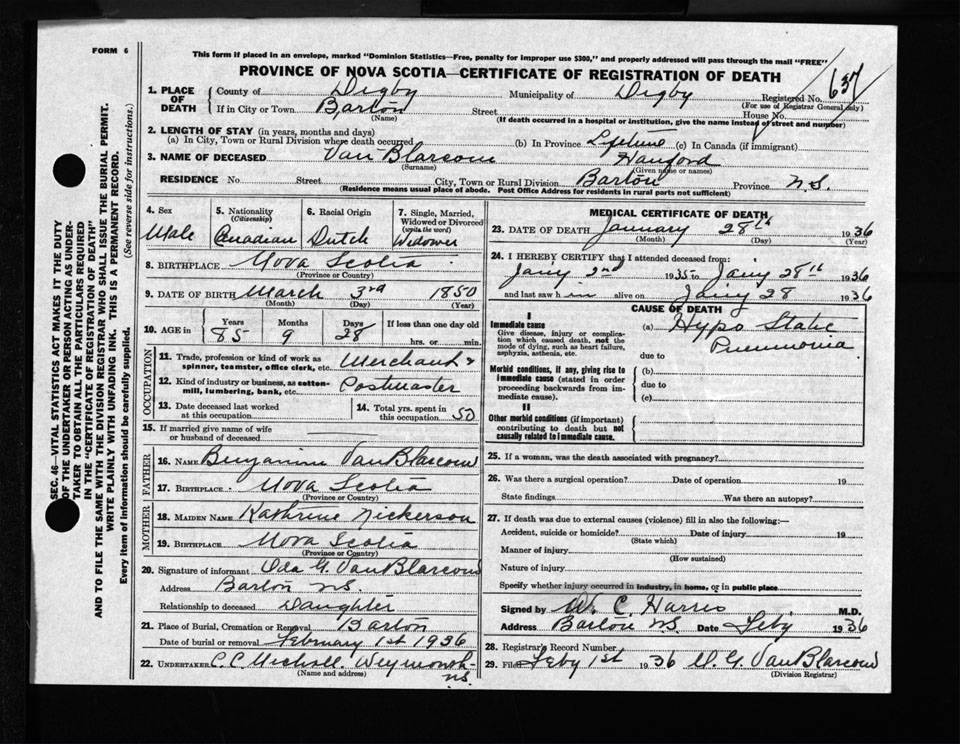 FORM 6
This form if placed in an envelope, marked "Dominion Statistics—Free, penalty for improper use $300," and properly addressed will pass through the mail "FREE"
PROVINCE OF NOVA SCOTIA—CERTIFICATE OF REGISTRATION OF DEATH
637
1. PLACE OF DEATH County of Digby Municipality of Digby Registered No.
(For use of Registrar General only)
If in City or Town Barton Street House No.
(Name) (If death occurred in a hospital or institution, give the name instead of street and number)
2. LENGTH OF STAY (in years, months and days)
(a) In City, Town or Rural Division where death occurred (b) In Province Lifetime (c) In Canada (if immigrant)
3. NAME OF DECEASED Van Blarcom Hanford
(Surname) (Given name or names)
RESIDENCE No Street City, Town or Rural Division Barton Province N.S.
(Residence means usual place of abode. Post Office Address for residents in rural parts not sufficient)
4. Sex Male
5. Nationality (Citizenship) Canadian
6. Racial Origin Dutch
7. Single, Married, Widowed or Divorced (write the word) Widower
8. BIRTHPLACE Nova Scotia
(Province or Country)
9. DATE OF BIRTH March 3rd 1850
(Month) (Day) (Year)
10. AGE in Years 85 Months 9 Days 28 If less than one day old hrs. or min.
OCCUPATION
11. Trade, profession or kind of work as spinner, teamster, office clerk, etc. Merchant &
12. Kind of industry or business, as cotton-mill, lumbering, bank, etc. Postmaster
13. Date deceased last worked at this occupation
14. Total yrs. spent in this occupation 50
15. If married give name of wife or husband of deceased
FATHER
16. NAME Benjamin Van Blarcom
17. BIRTHPLACE Nova Scotia
(Province or Country)
MOTHER
18. MAIDEN NAME Kathrene Nickerson
19. BIRTHPLACE Nova Scotia
(Province or Country)
20. Signature of informant Ida G. Van Blarcom
Address Barton N.S.
Relationship to deceased Daughter
21. Place of Burial, Cremation or Removal Barton
Date of burial or removal February 1st 1936
22. UNDERTAKER C. C. Weymouth N.S.
(Name and address)
MEDICAL CERTIFICATE OF DEATH
23. DATE OF DEATH January 28th 1936
(Month) (Day) (Year)
24. I HEREBY CERTIFY that I attended deceased from:
Jany 2nd 1935 to Jany 28th 1936
and last saw h im alive on Jany 28 1936
CAUSE OF DEATH
I
Immediate cause
Give disease, injury or complication which caused death, not the mode of dying, such as heart failure, asphyxia, asthenia, etc.
(a) Hypo Static
Pneumonia
due to
Morbid conditions, if any, giving rise to immediate cause (stated in order proceeding backwards from immediate cause).
(b)
due to
(c)
II
Other morbid conditions (if important) contributing to death but not causally related to immediate cause.
25. If a woman, was the death associated with pregnancy?
26. Was there a surgical operation? Date of operation 19
State findings Was there an autopsy?
27. If death was due to external causes (violence) fill in also the following:—
Accident, suicide or homicide? Date of injury 19
(State which)
Manner of injury
(How sustained)
Nature of injury
Specify whether injury occurred in industry, in home, or in public place
Signed by W. C. Harris M.D.
Address Barton N.S. Date Feby 1936
28. Registrar's Record Number
29. Filed Feby 1st 1936 Van Blarcom
(Division Registrar)
SEC. 46—VITAL STATISTICS ACT MAKES IT THE DUTY
OF THE UNDERTAKER OR PERSON ACTING AS UNDER-
TAKER TO OBTAIN ALL THE PARTICULARS REQUIRED
IN THE "CERTIFICATE OF REGISTRATION OF DEATH"
AND TO FILE THE SAME WITH THE DIVISION REGISTRAR WHO SHALL ISSUE THE BURIAL PERMIT.
WRITE PLAINLY WITH UNFADING INK. THIS IS A PERMANENT RECORD.
Every item of information should be carefully supplied. (See reverse side for instructions.)